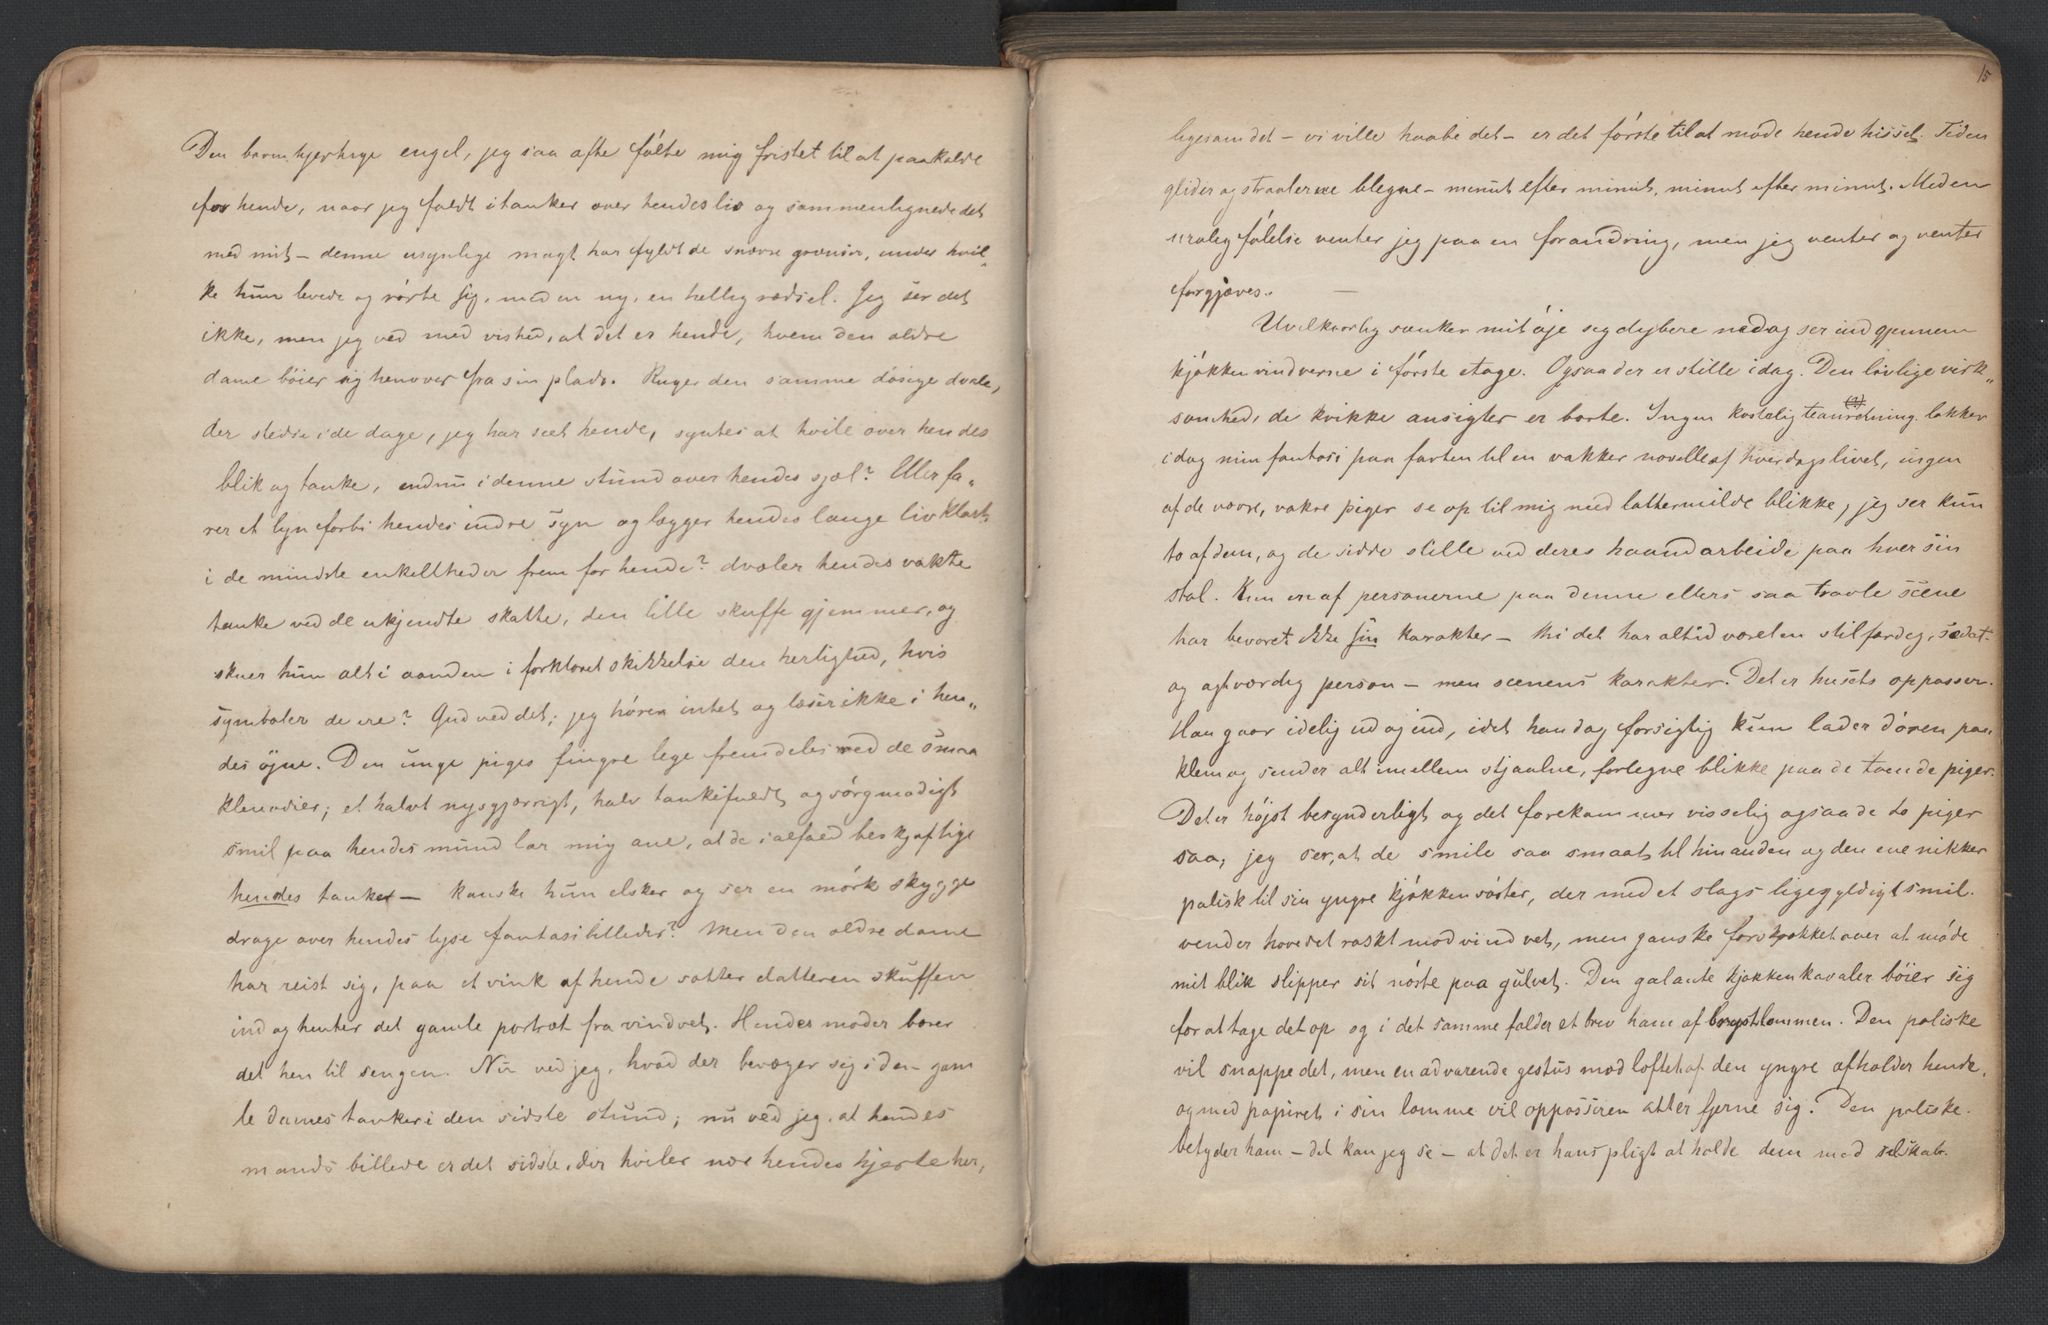 Den barmhjertige engel, jeg saa ofte følte mig fristet til at paakalde
for hende, naar jeg faldt i tanker over hendes liv og sammenlignede det
med mit – denne usynlige magt har fyldt de snevre grænser, under hvil„
ke hun levede og rørte sig, med en ny, en hellig rædsel. Jeg ser det
ikke, men jeg ved med vished, at det er hende, hvem den ældre
dame bøier sig henover fra sin plads. Ruger den samme døsige dvale,
der stedse i de dage, jeg har seet hende, syntes at hvile over hendes
blik og tanke, endnu i denne stund over hendes sjæl? Eller fa„
rer et lyn forbi hendes indre syn og lægger hendes lange liv klart
i de mindste enkeltheder frem for hende? dvæler hendes vakte
tanke ved de ukjendte skatte, den lille skuffe gjemmer, og
skuer hun alt i aanden i forklaret skikkelse den herlighed, hvis
symboler de ere? Gud ved det; jeg hører intet og læser ikke i hen„
des øjne. Den unge piges fingre lege fremdeles med de smaa
klenodier; et halvt nysgjerrigt, halv tankefuldt og sørgmodigt
smil paa hendes mund lar mig ane, at de ialfald beskjæftige
hendes tanker – kanske hun elsker og ser en mørk skygge
drage over hendes lyse fantasibilleder? Men den ældre dame
har reist sig, paa et vink af hende sætter datteren skuffen
ind og henter det gamle portræt fra vindvet. Hendes moder bærer
det hen til sengen. Nu ved jeg, hvad der bevæger sig i den gam
le dames tanker i den sidste stund; nu ved jeg, at hendes
mands billede er det sidste, der hviler nær hendes hjerte her,
15
ligesom det – vi ville haabe det – er det første til at møde hende hisset. Tiden
glider og straalerne blegne – minut efter minut, minut efter minut. Med en
urolig følelse venter jeg paa en forandring, men jeg venter og venter
forgjæves. —
Uvilkaarlig sænker mit øje sig dybere ned og ser ind gjennem
kjøkkenvindverne i første etage. Ogsaa der er stille idag. Den livlige virk„
somhed, de kvikke ansigter er borte. Ingen kostelig teanretning lokker
idag min fantasi paa farten til en vakker novelle af hverdagslivet, ingen
af de vævre, vakre piger se op til mig med lattermilde blikke, jeg ser kun
to af dem, og de sidde stille ved deres haandarbeide paa hver sin
stol. Kun en af personerne paa denne ellers saa travle scene
har bevaret ikke sin karakter – thi det har altid været en stilfærdig, sedat
og agtværdig person – men scenens karakter. Det er husets oppasser.
Han gaar idelig ud og ind, idet han dog forsigtig kun lader døren paa
klem og sender alt imellem stjaalne, forlegne blikke paa de tvende piger.
Det er højst besynderligt og det forekommer visselig ogsaa de to piger
saa, jeg ser, at de smile saa smaat til hinanden og den ene nikker
polisk til sin yngre kjøkkensøster, der med et slags ligegyldigt smil
vender hovedet raskt mod vindvet, men ganske forskrækket over at møde
mit blik slipper sit nøste paa gulvet. Den galante kjøkkenkavaler bøier sig
for at tage det op og i det samme falder et brev ham af brystlommen. Den poliske
vil snappe det, men en advarende gestus mod loftet af den yngre afholder hende,
og med papiret i sin lomme vil oppasseren atter fjerne sig. Den poliske
betyder ham – det kan jeg se – at det er hans pligt at holde dem med selskab.